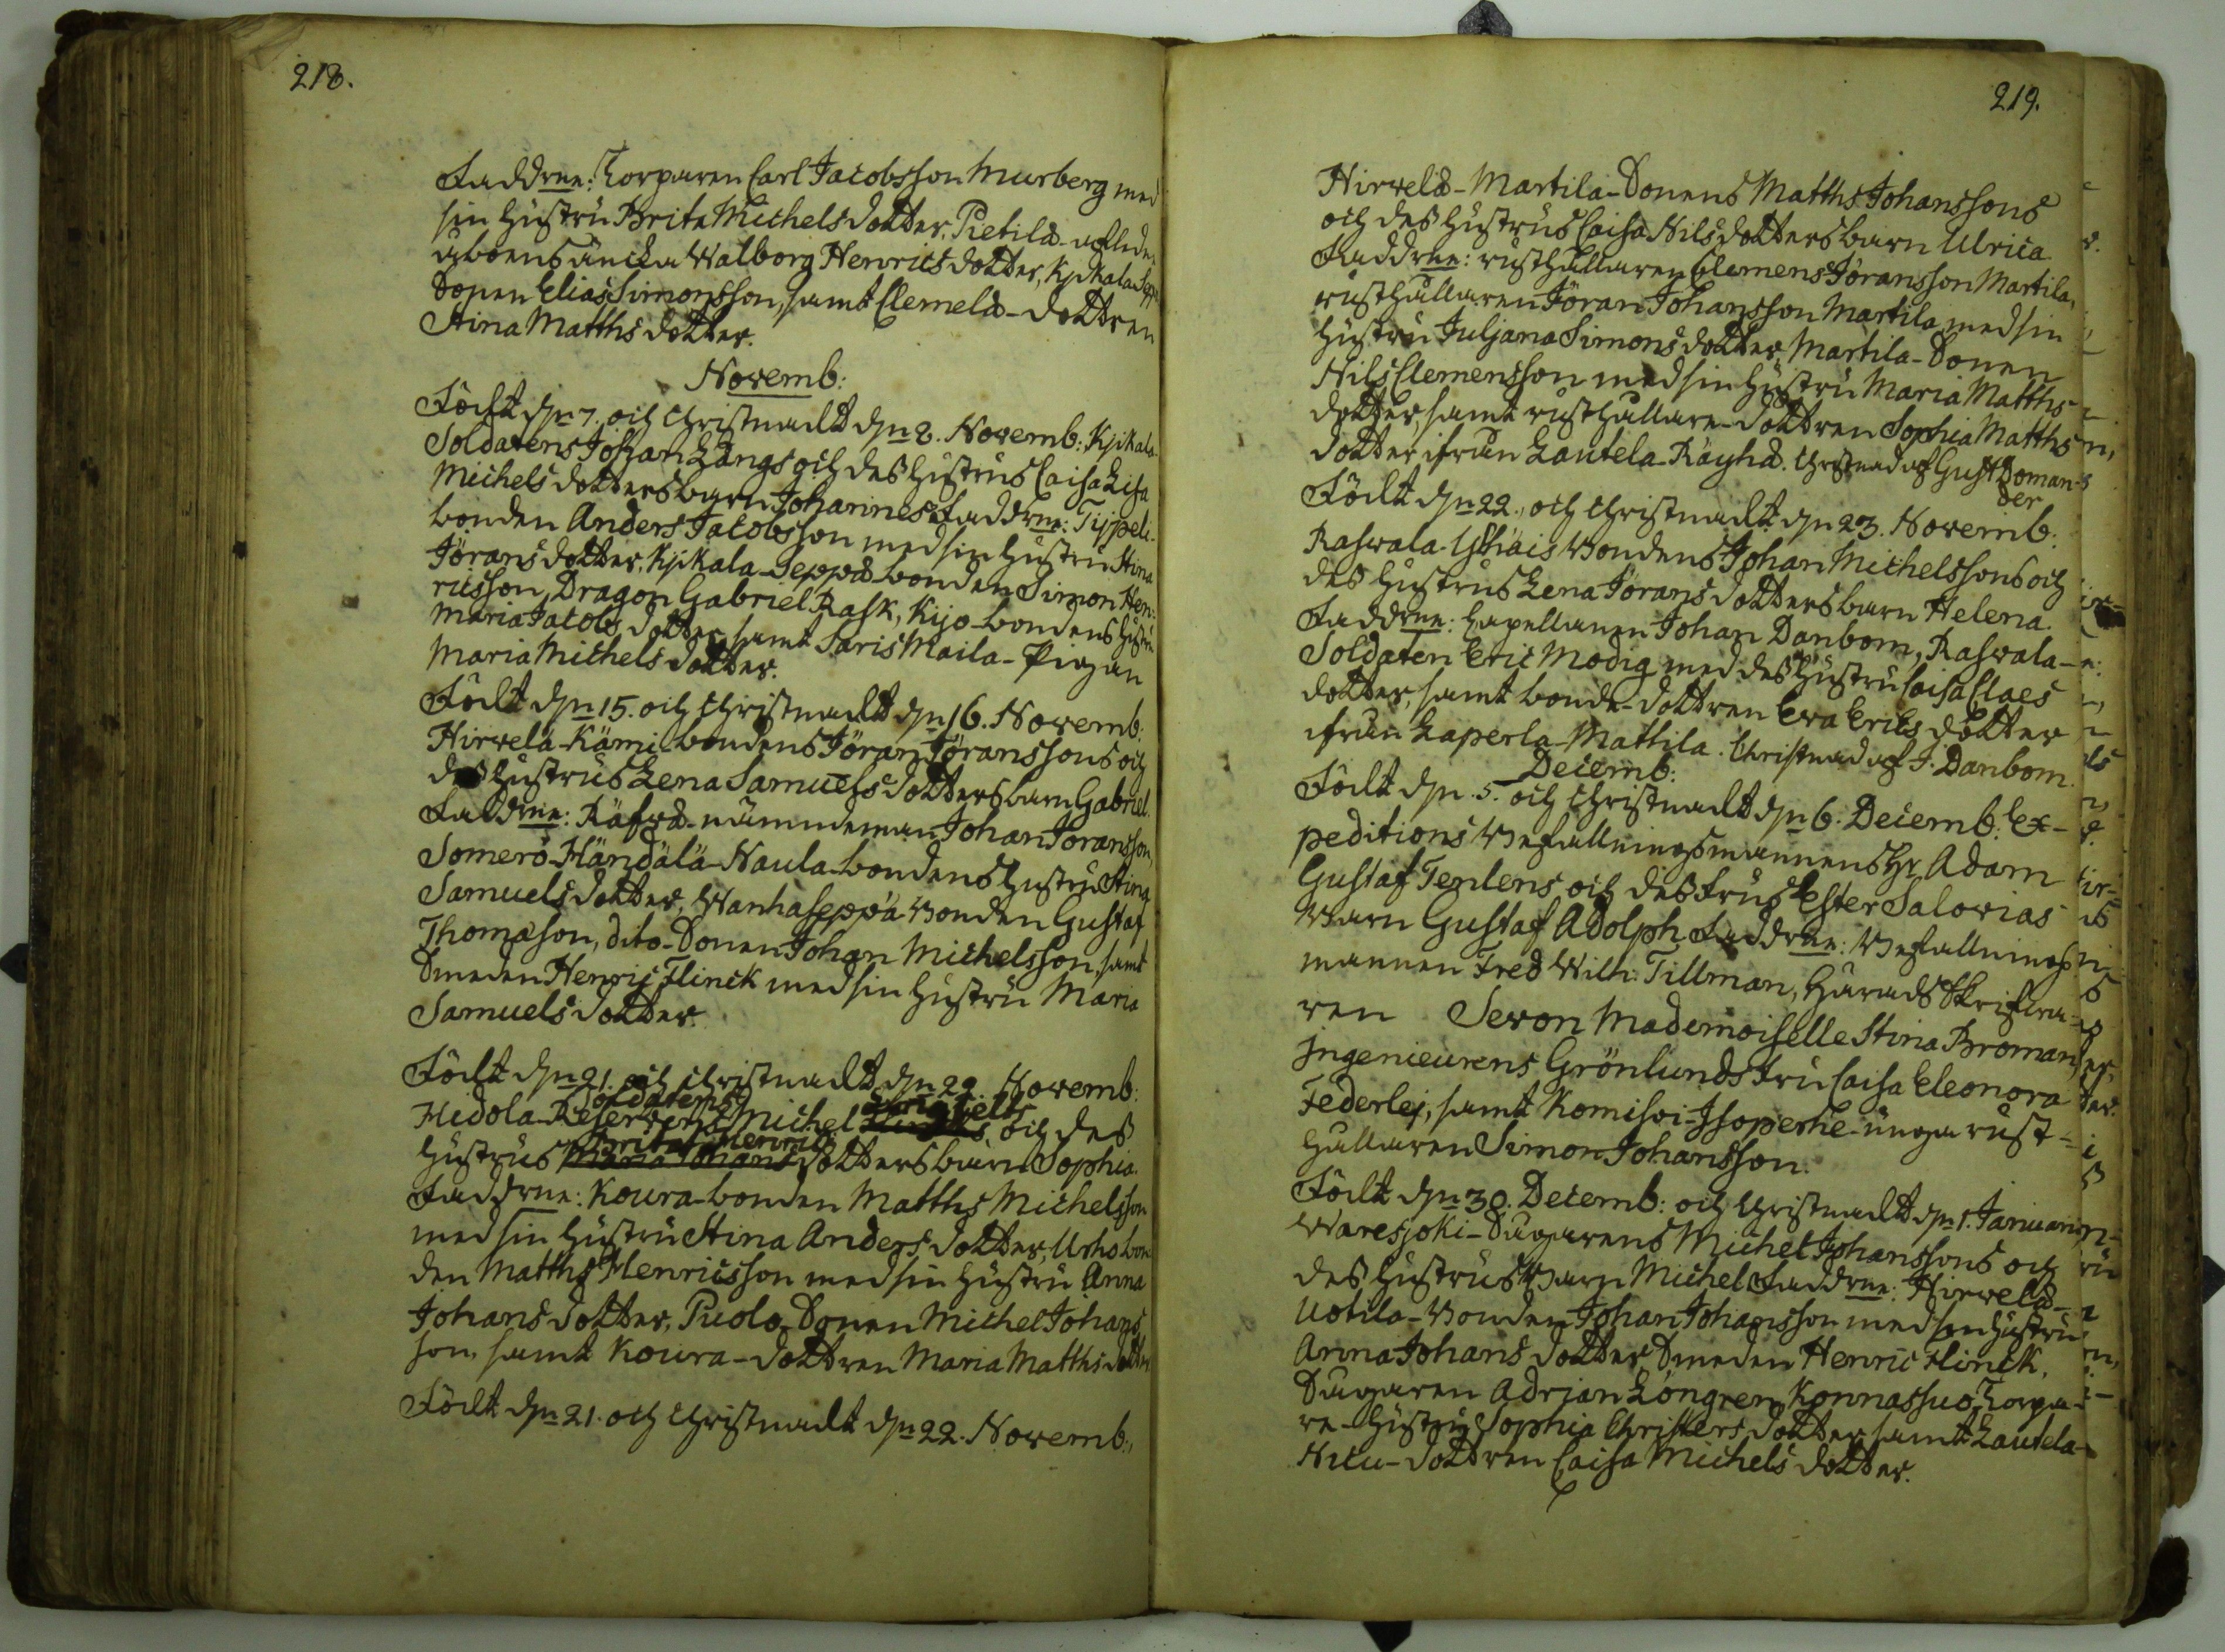 218.
Faddrne: Torparen Carl Jacobsson Murberg med
sin hustru Brita Michels dotter, Pietilä-
åboens äncka Walborg Henrics dotter, Kjikala Seppä
Sonen Elias Simonsson, samt Clemelä-dottren
Stina Matths dotter.
Novemb:
Född d:n 7. och Christnadt d:n 8. Novemb: Kjikala-
Soldatens Johan Långs och dess hustrus Caisa Lisa
Michels dotters barn Johannes Faddrne: Tippeli-
bonden Anders Jacobsson med sin hustru Stina
Jörans dotter, Kjikala Seppä bonden Simon Hen-
ricsson, Dragon Gabriel Rask, Kijo-bondens hustru
Maria Jacobs dotter, samt Saris Maila-Pigan
Maria Michels dotter.
Född d:n 15. och Christnadt d:n 16. Novemb:
Hirvelä-Kämi-bondens Jöran Jöranssons och
dess hustrus Lena Samuels dotters barn Gabriel.
Faddrne: Räfvä-nämndeman Johan Joransson,
Somero-Händälä-Naula-bondens hustru Stina
Samuels dotter, Wanhaseppä Bonden Gustaf
Thomæson, dito-Sonen Johan Michelsson, samt
Smeden Henric Flinck med sin hustru Maria
Samuels dotter.
Född d:n 21. och Christnadt d:n 22. Novemb:
Soldatens
Hidola-Reservens Michel och dess
Brita Henrics
hustrus Maria Johans dotters barn Sophia.
Faddrne: Koura-bonden Matths Michelsson
med sin hustru Stina Anders dotter, Urho bon-
den Matths Henricsson med sin hustru Anna
Johans dotter, Puolo-Sonen Michel Johans
son, samt Koura-dottren Maria Matths dotter
Född d:n 21. och Christnadt d:n 22. Novemb:,
219.
Hirvelä-Martila-Sonens Matths Johanssons
och dess hustrus Caisa Nils dotters barn Ulrica.
Faddrne: rusthållaren Clemens Jöransson Martila,
rusthållaren Jöran Johansson Martila med sin
hustru Juljana Simons dotter, Martila-Sonen
Nils Clemensson med sin hustru Maria Matths
dotter, samt rusthållare-dottren Sophia Matths
dotter ifrån Lautela-Räyhä. Christnad af Gust Doman-
der
Född d:n 22., och Christnadt d:n 23. Novemb:
Raswala Bondens Johan Michelssons och
dess hustrus Lena Jörans dotters barn Helena.
Faddrne: Capellanen Johan Danbom, Raswala-
Soldaten Eric Modig med dess hustru Caisa Claes
dotter, samt bonde-dottren Eva Erics dotter
ifrån Laperla-Mattila. Christnad af J. Danbom.
Decemb:
Född d:n 5. och Christnadt d:n 6. Decemb: Ex-
peditions Befallningsmannens Hr Adam
Gustaf Tenlens och dess frus Ester Salovias
Barn Gustaf Adolph Faddrne: Befallnings
mannen Fred Wilh: Tillman, häradsskrifva-
ren Sevon Mademoiselle Stina Broman,
Ingenieurens Grönlunds fru Caisa Eleonora
Federlej, samt Komisoi-Isoperhe-unga rust-
hållaren Simon Johansson.
Född d:n 30. Decemb: och Christnadt d:n 1. Januari
Waresjoki-Sugarens Michel Johanssons och
dess hustrus Barn Michel Faddrne: Hirvelä-
Uotila-Bonden Johan Johansson med sin hustru
Anna Johans dotter, Smeden Henric Flinck,
Sugaren Adrjan Löngren, Konnassuo Torpa-
re-hustru Sophia Christers dotter samt Lautela-
Nicu-dottren Caisa Michels dotter.